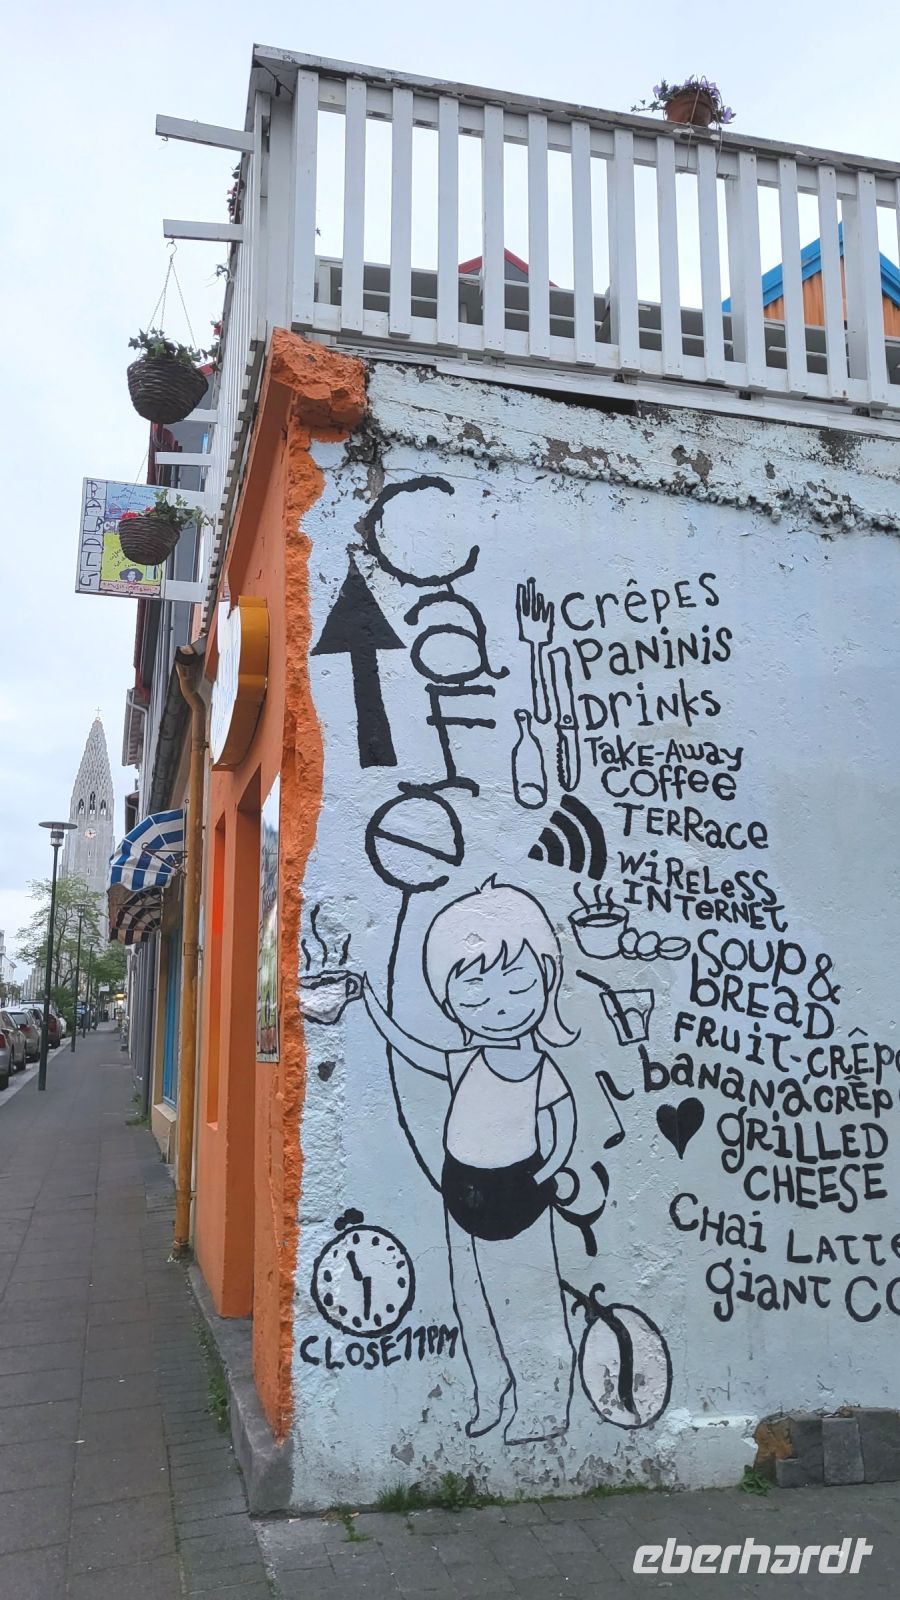 Café
CRÊPES
PANINIS
DRINKS
TAKE-AWAY
COFFEE
TERRACE
WIRELESS
INTERNET
SOUP &
BREAD
FRUIT-CRÊP
BANANA CRÊP
GRILLED
CHEESE
CHAI LATTE
GIANT CO
CLOSE 11PM
eberhardt